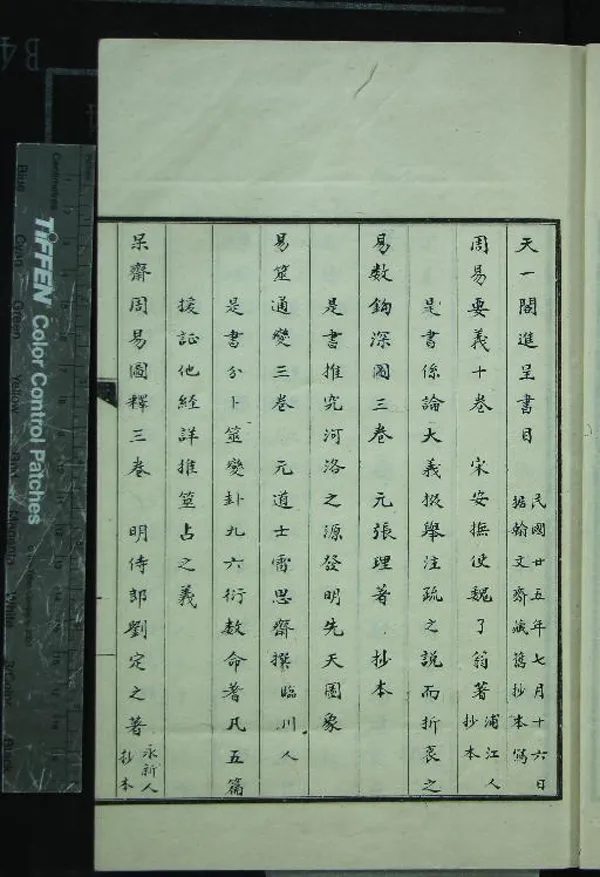 天一閣進呈書目 民國廿五年七月十六日據翰文齋藏舊抄本寫
周易要義十卷 宋安撫使魏了翁著 浦江人抄本
是書係論大義掇舉注疏之說而折衷之
易數鈎深圖三卷 元張理著 抄本
是書推究河洛之源發明先天圖象
易筮通變三卷 元道士雷思齋撰 臨川人
是書分卜筮變卦九六衍數命蓍凡五篇
援証他經詳推筮占之義
呆齋周易圖釋三卷 明侍郎劉定之著 永新人抄本
TIFFEN Color Control Patches
Centimetres
Blue
Cyan
Green
Yellow
Red
Magenta
White
3/Color
Black
B4